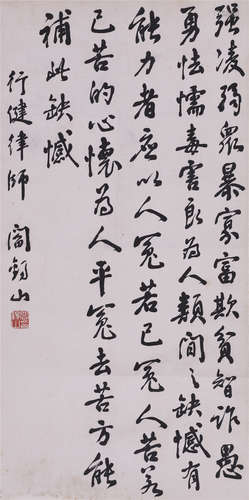 强凌弱众暴寡富欺貧智詐愚
勇怯懦毒害良為人類間之缺憾有
能力者應以人冤若己冤人苦若
己苦的心懷為人平冤去苦方能
補此缺憾
行健律師
閻錫山